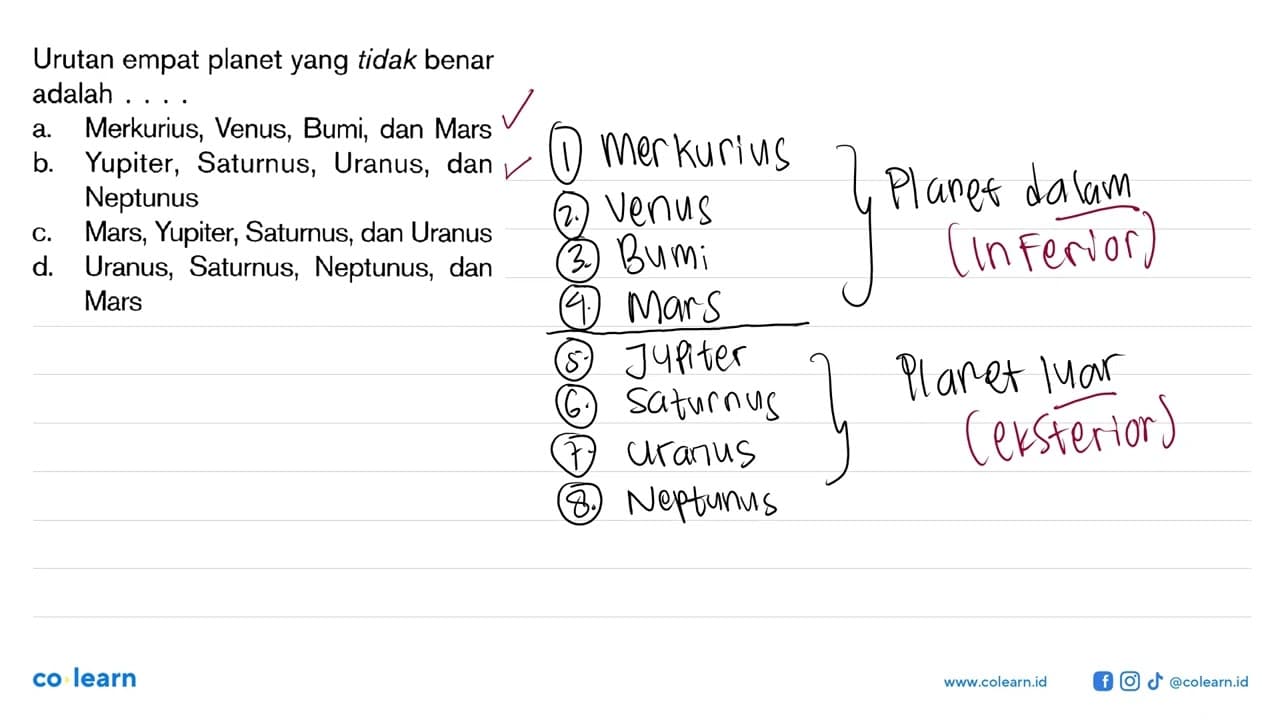 Urutan empat planet yang tidak benar
adalah . . . .
a. Merkurius, Venus, Bumi, dan Mars
b. Yupiter, Saturnus, Uranus, dan
Neptunus
c. Mars, Yupiter, Saturnus, dan Uranus
d. Uranus, Saturnus, Neptunus, dan
Mars
1 Merkurius
2. Venus
3. Bumi
4. Mars
Planet dalam
(Inferior)
5. Jupiter
6. Saturnus
7. Uranus
8. Neptunus
Planet luar
(eksterior)
co learn
www.colearn.id
@colearn.id